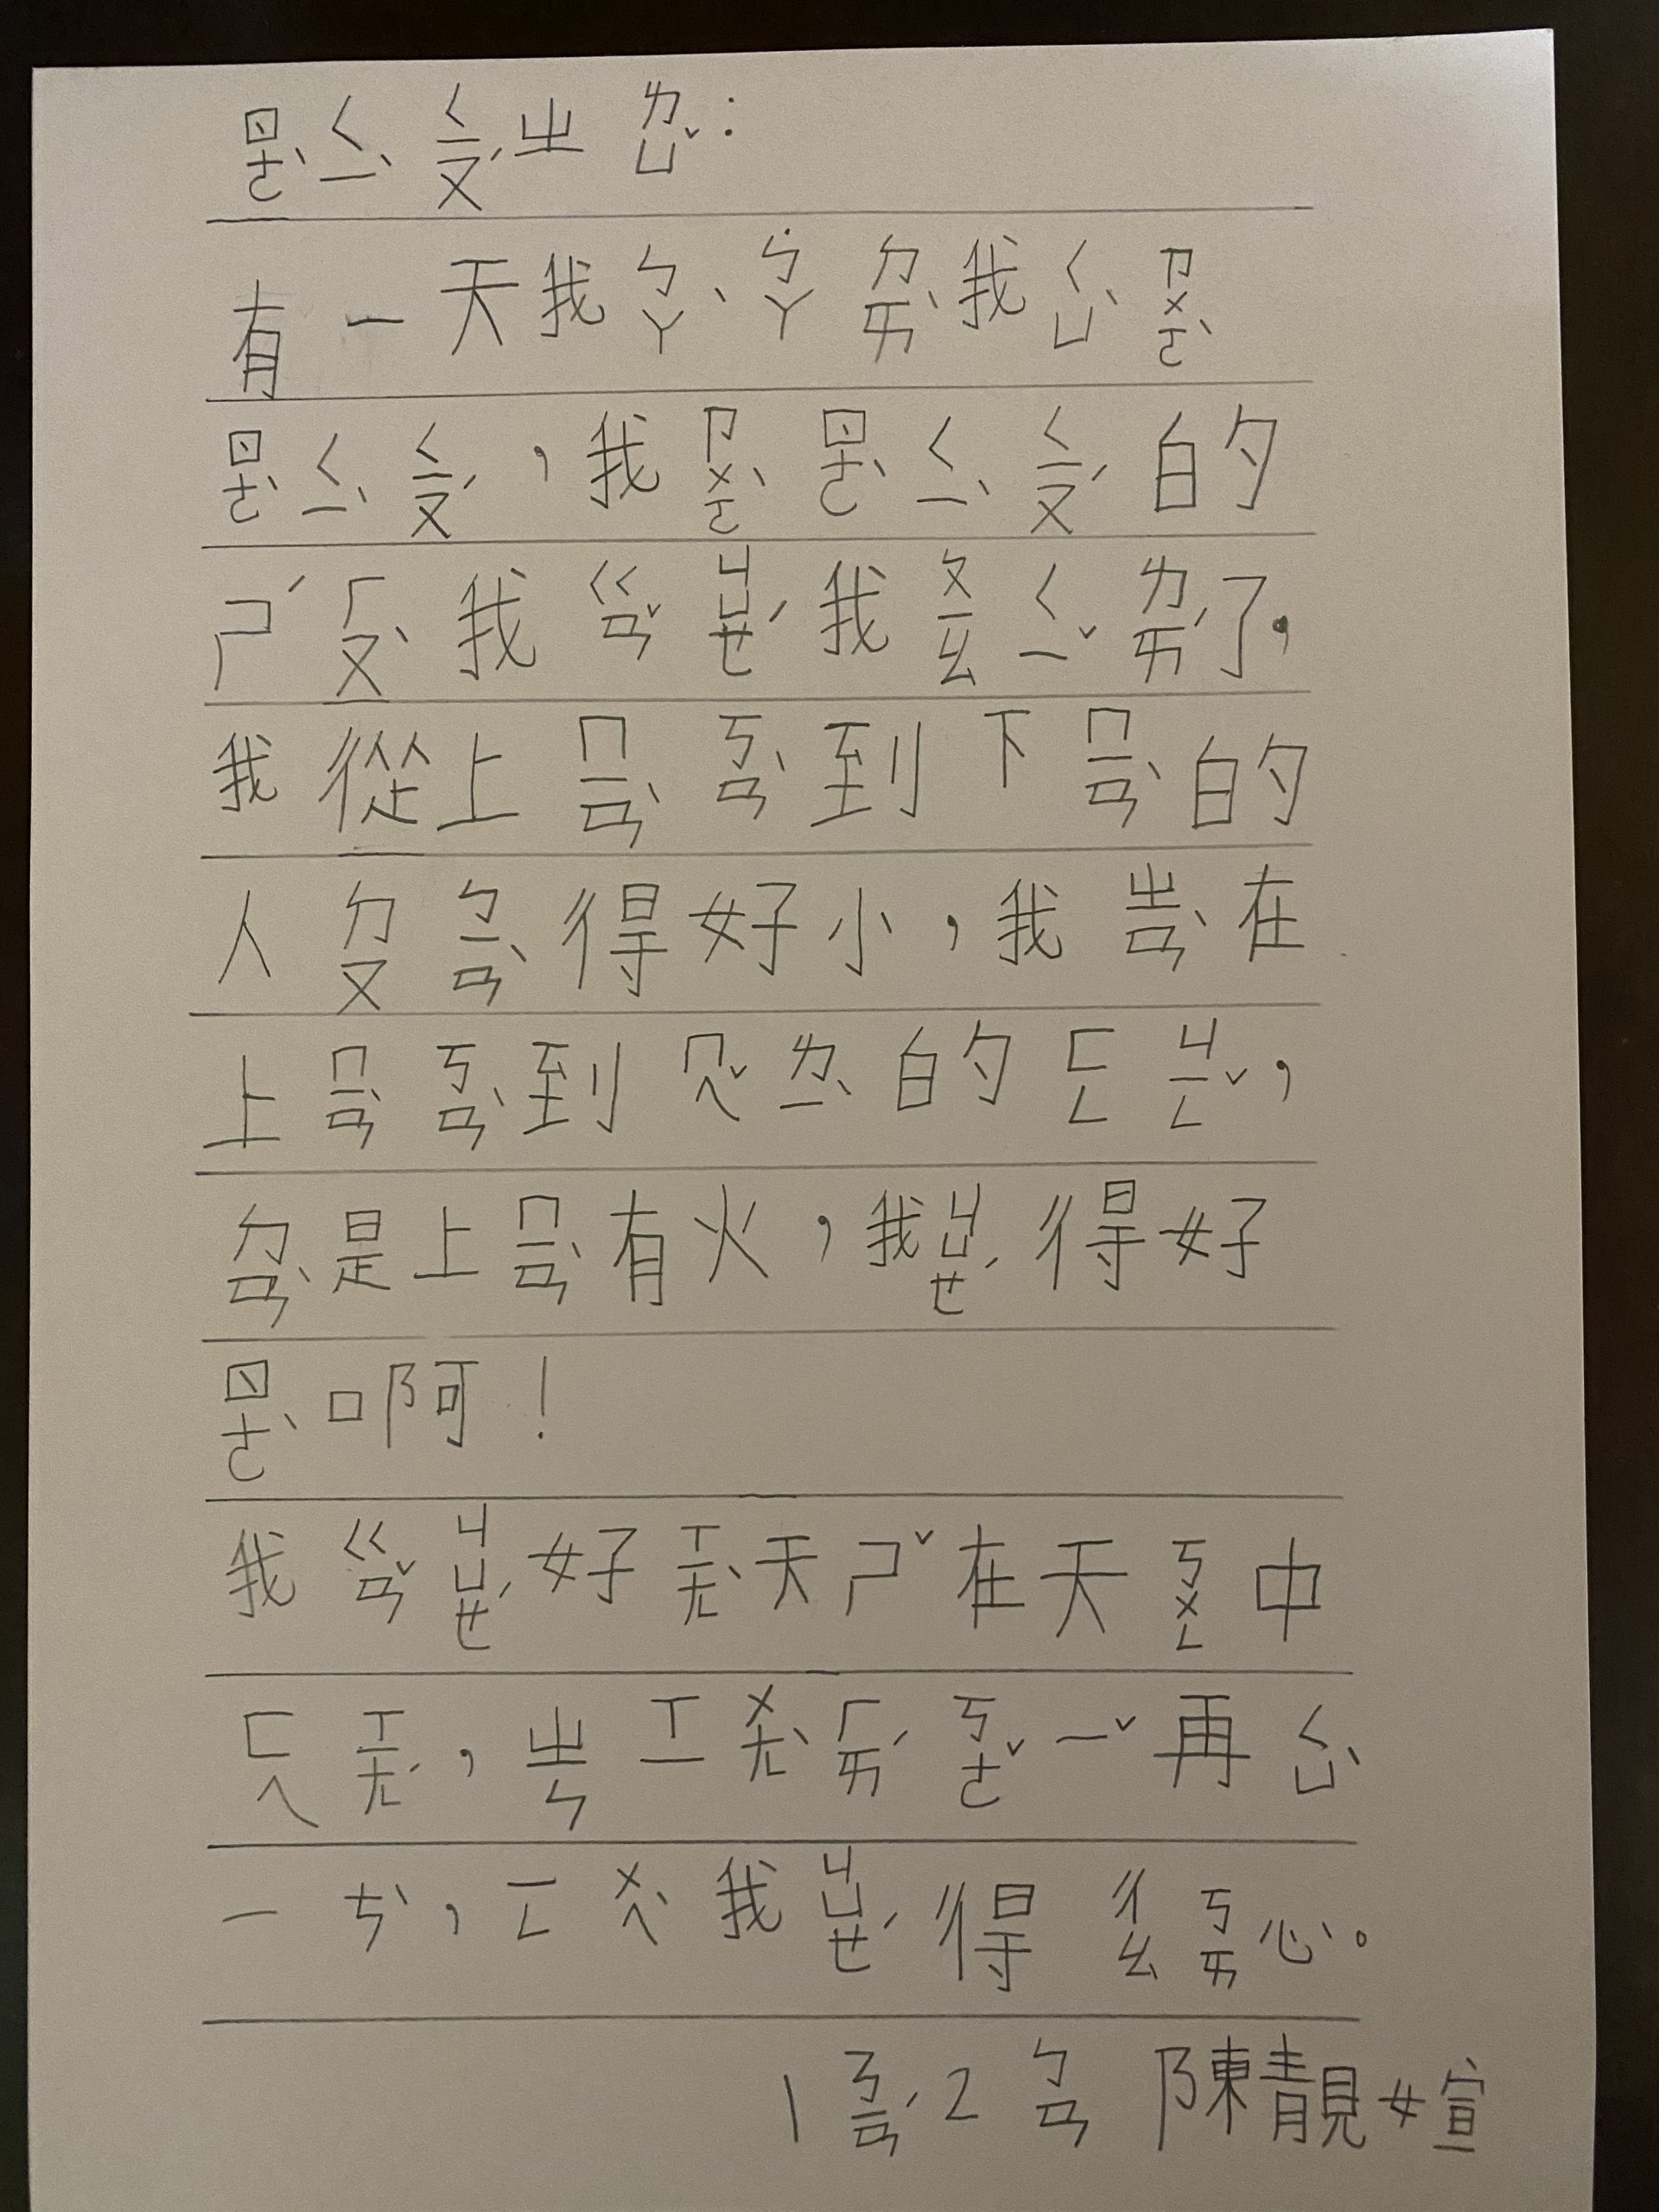 ㄖㄜˋㄑㄧˋㄑㄧㄡˊㄓ ㄌㄩˇ：
有一天我ㄅㄚˋㄅㄚ˙ㄉㄞˋ我ㄑㄩˋㄗㄨㄛˋ
ㄖㄜˋㄑㄧˋㄑㄧㄡˊ，我ㄗㄨㄛˋㄖㄜˋㄑㄧˋㄑㄧㄡˊ的
ㄕˊㄏㄡˋ我ㄍㄢˇㄐㄩㄝˊ我ㄆㄧㄠ ㄑㄧˇㄌㄞˊ了，
我從上ㄇㄧㄢˋㄎㄢˋ到下ㄇㄧㄢˋ的
人ㄉㄡ ㄅㄧㄢˋ得好小，我ㄓㄢˋ在
上ㄇㄧㄢˋㄎㄢˋ到ㄇㄟˇㄌㄧˋ的ㄈㄥ ㄐㄧㄥˇ，
ㄉㄢˋ是上ㄇㄧㄢˋ有火，我ㄐㄩㄝˊ得好
ㄖㄜˋ啊！
我ㄍㄢˇㄐㄩㄝˊ好ㄒㄧㄤˋ天ㄕˇ在天ㄎㄨㄥ中
ㄈㄟ ㄒㄧㄤˊ，ㄓㄣ ㄒㄧ ㄨㄤˋㄏㄞˊㄎㄜˇㄧˇ再ㄑㄩˋ
一ㄘˋ，ㄧㄥ ㄨㄟˋ我ㄐㄩㄝˊ得ㄔㄠ ㄎㄞ 心。
1ㄋㄧㄢˊ2ㄅㄢ 陳靚媗